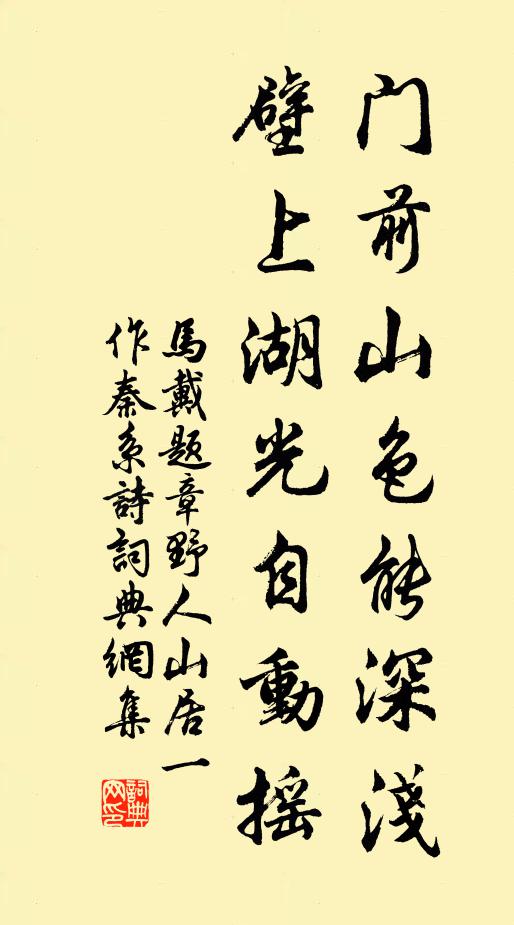 门前山色能深淺
壁上湖光自動摇
馬戴題章野人山居一
作秦系詩詞典網集
詞典网印